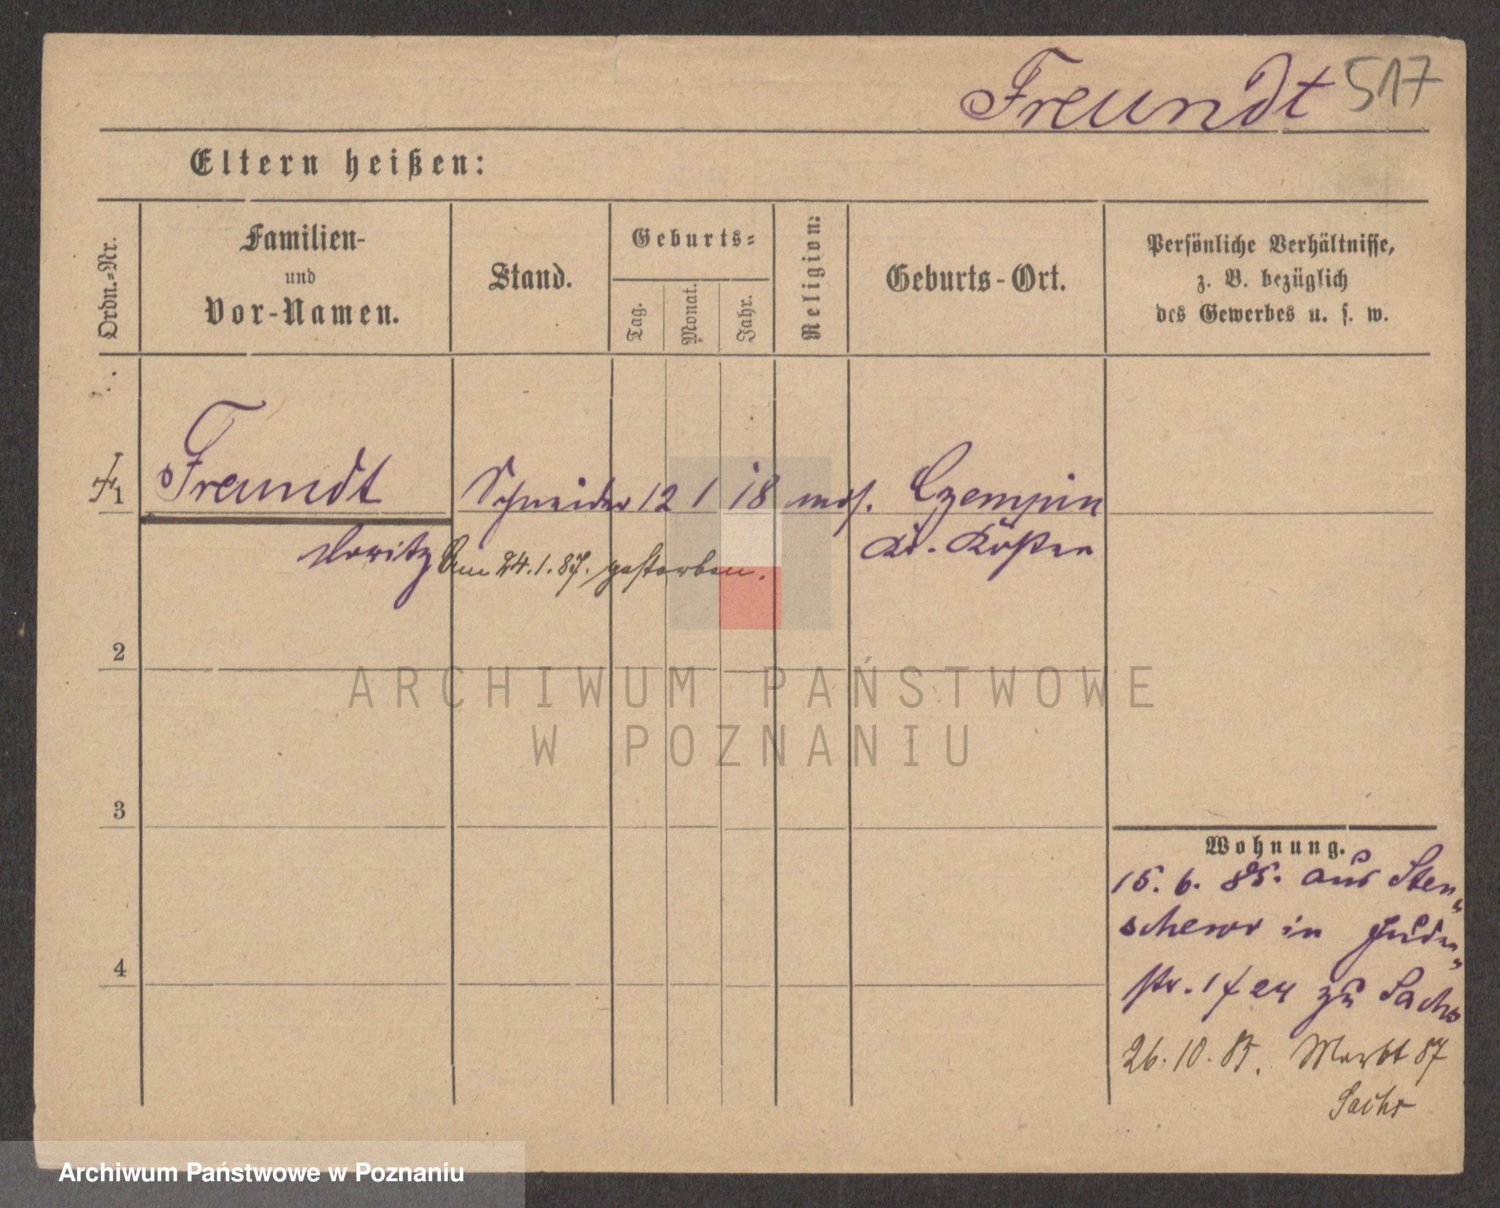 Freundt 517
Eltern heißen:
Ordn.-Nr.
Familien-
und
Vor-Namen.
Stand.
Geburts-
Tag.
Monat.
Jahr.
Religion:
Geburts-Ort.
Persönliche Verhältnisse,
z. B. bezüglich
des Gewerbes u. s. w.
1 Freundt Schneider 12 1 18 mos. Czempin
Moritz Kr. Kosten
Am 24.1.87. gestorben.
2
3
4
Wohnung.
15. 6. 85. aus Sten-
schewo in Juden-
str. zu Sachs
26. 10. 85. Markt 87
Sachs
ARCHIWUM PAŃSTWOWE
W POZNANIU
Archiwum Państwowe w Poznaniu